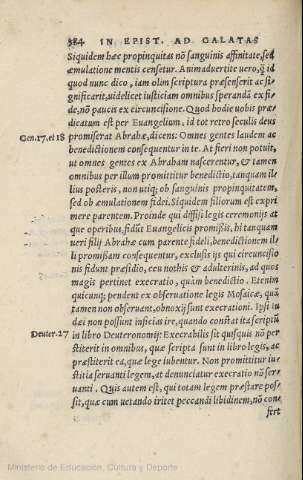 384 IN EPIST. AD GALATAS
Siquidem hæc propinquitas nō sanguinis affinitate, sed
æmulatione mentis censetur. Animaduertite uero, q̃ id
quod nunc dico, iam olim scriptura præsenserit ac si-
gnificarit, uidelicet iusticiam omnibus sperandā ex fi-
de, nō paucis ex circuncisione. Quod hodie uobis præ-
dicatum est per Euangelium, id tot retro seculis deus
Gen. 17. et 18 promiserat Abrahæ, dicens: Omnes gentes laudem ac
benedictionem consequentur in te. At fieri non potuit,
ut omnes gentes ex Abraham nascerentur, & tamen
omnibus per illum promittitur benedictio, tanquam il-
lius posteris, non utiq; ob sanguinis propinquitatem,
sed ob æmulationem fidei. Siquidem filiorum est expri
mere parentem. Proinde qui diffisi legis ceremonijs at
que operibus, fidūt Euangelicis promissis, hi tanquam
ueri filij Abrahæ cum parente fideli, benedictionem il-
li promissam consequuntur, exclusis ijs qui circuncisio
nis fidunt præsidio, ceu nothis & adulterinis, ad quos
magis pertinet execratio, quàm benedictio. Etenim
quicunq; pendent ex obseruatione legis Mosaicæ, quā
tamen non obseruant, obnoxij sunt execrationi. Ipsi iu
dæi non possunt inficias ire, quando constat ita scriptū
Deuter. 27 in libro Deuteronomij: Execrabilis sit quisquis nō per
stiterit in omnibus, quæ scripta sunt in libro legis, ac
præstiterit ea, quæ lege iubentur. Non promittitur iu-
stitia seruanti legem, at denunciatur execratio nō ser-
uanti. Quis autem est, qui totam legem præstare pos-
sit, quæ cum uetando iritet peccandi libidinem, nō con-
fert
Ministerio de Educación, Cultura y Deporte